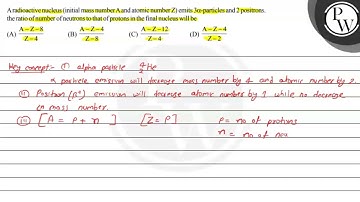 A radioactive nucleus (initial mass number A and atomic number Z) emits 3α-particles and 2 positrons.
the ratio of number of neutrons to that of protons in the final nucleus will be
(A) A−Z−8 / Z−4 (B) A−Z−4 / Z−8 (C) A−Z−12 / Z−4 (D) A−Z−4 / Z−2
Key concept:- (i) alpha particle ⁴₂He
α particle emission will decrease mass number by 4 and atomic number by 2.
(ii) Positron (β⁺) emission will decrease atomic number by 1 while no decrease
in mass number.
(iii) [A = P + n] [Z = P] P = no of protons
n = no of neu